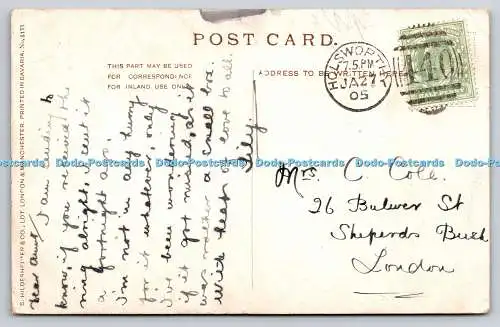 POST CARD.
THIS PART MAY BE USED
FOR CORRESPONDENCE
FOR INLAND USE ONLY
ADDRESS TO BE WRITTEN HERE
HOLSWORTHY
7.5 PM
JA 27
05
S. HILDESHEIMER & CO., LDT. LONDON & MANCHESTER. PRINTED IN BAVARIA. No. 5133
Dear Aunt,
I am writing to
know, if you received the
ning alright, I sent it
a fortnight ago.
I'm not in any hurry
for it whatever, only
I've been wondering
if it got missed, as it
was rather a small box.
With best of love to all.
Mrs. C. Cole.
26 Bulwer St
Sheperds Bush
London
Dodo-Postcards Dodo-Postcards Dodo-Postcards Dodo-Postcards Dodo-Postcards Dodo-Postcards